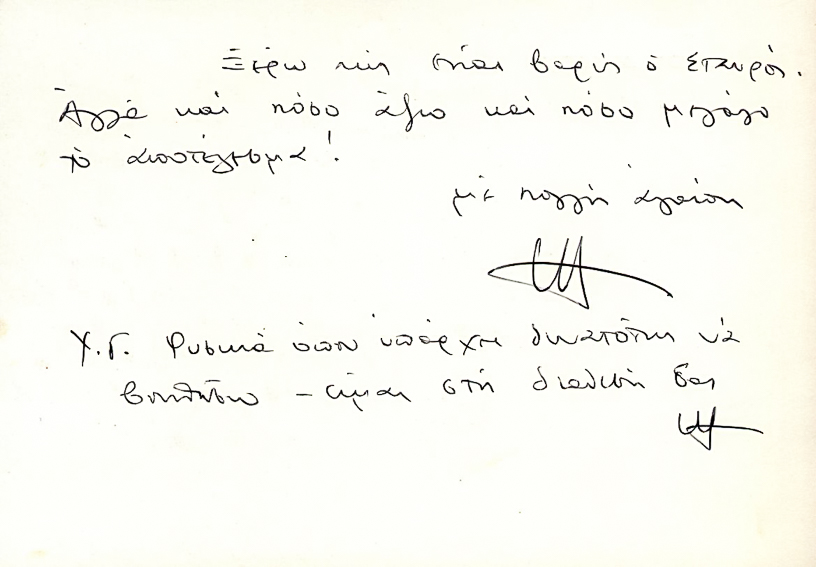 Ξέρω πώς εἶναι βαρύς ὁ σταυρός.
Ἀλλά καί πόσο ἄξιο καί πόσο μεγάλο
τό ἀποτέλεσμα!
μέ πολλή ἀγάπη
Υ.Γ. Φυσικά ὅπου ὑπάρχει δυνατότης νά
βοηθήσω – εἶμαι στή διάθεσή σας